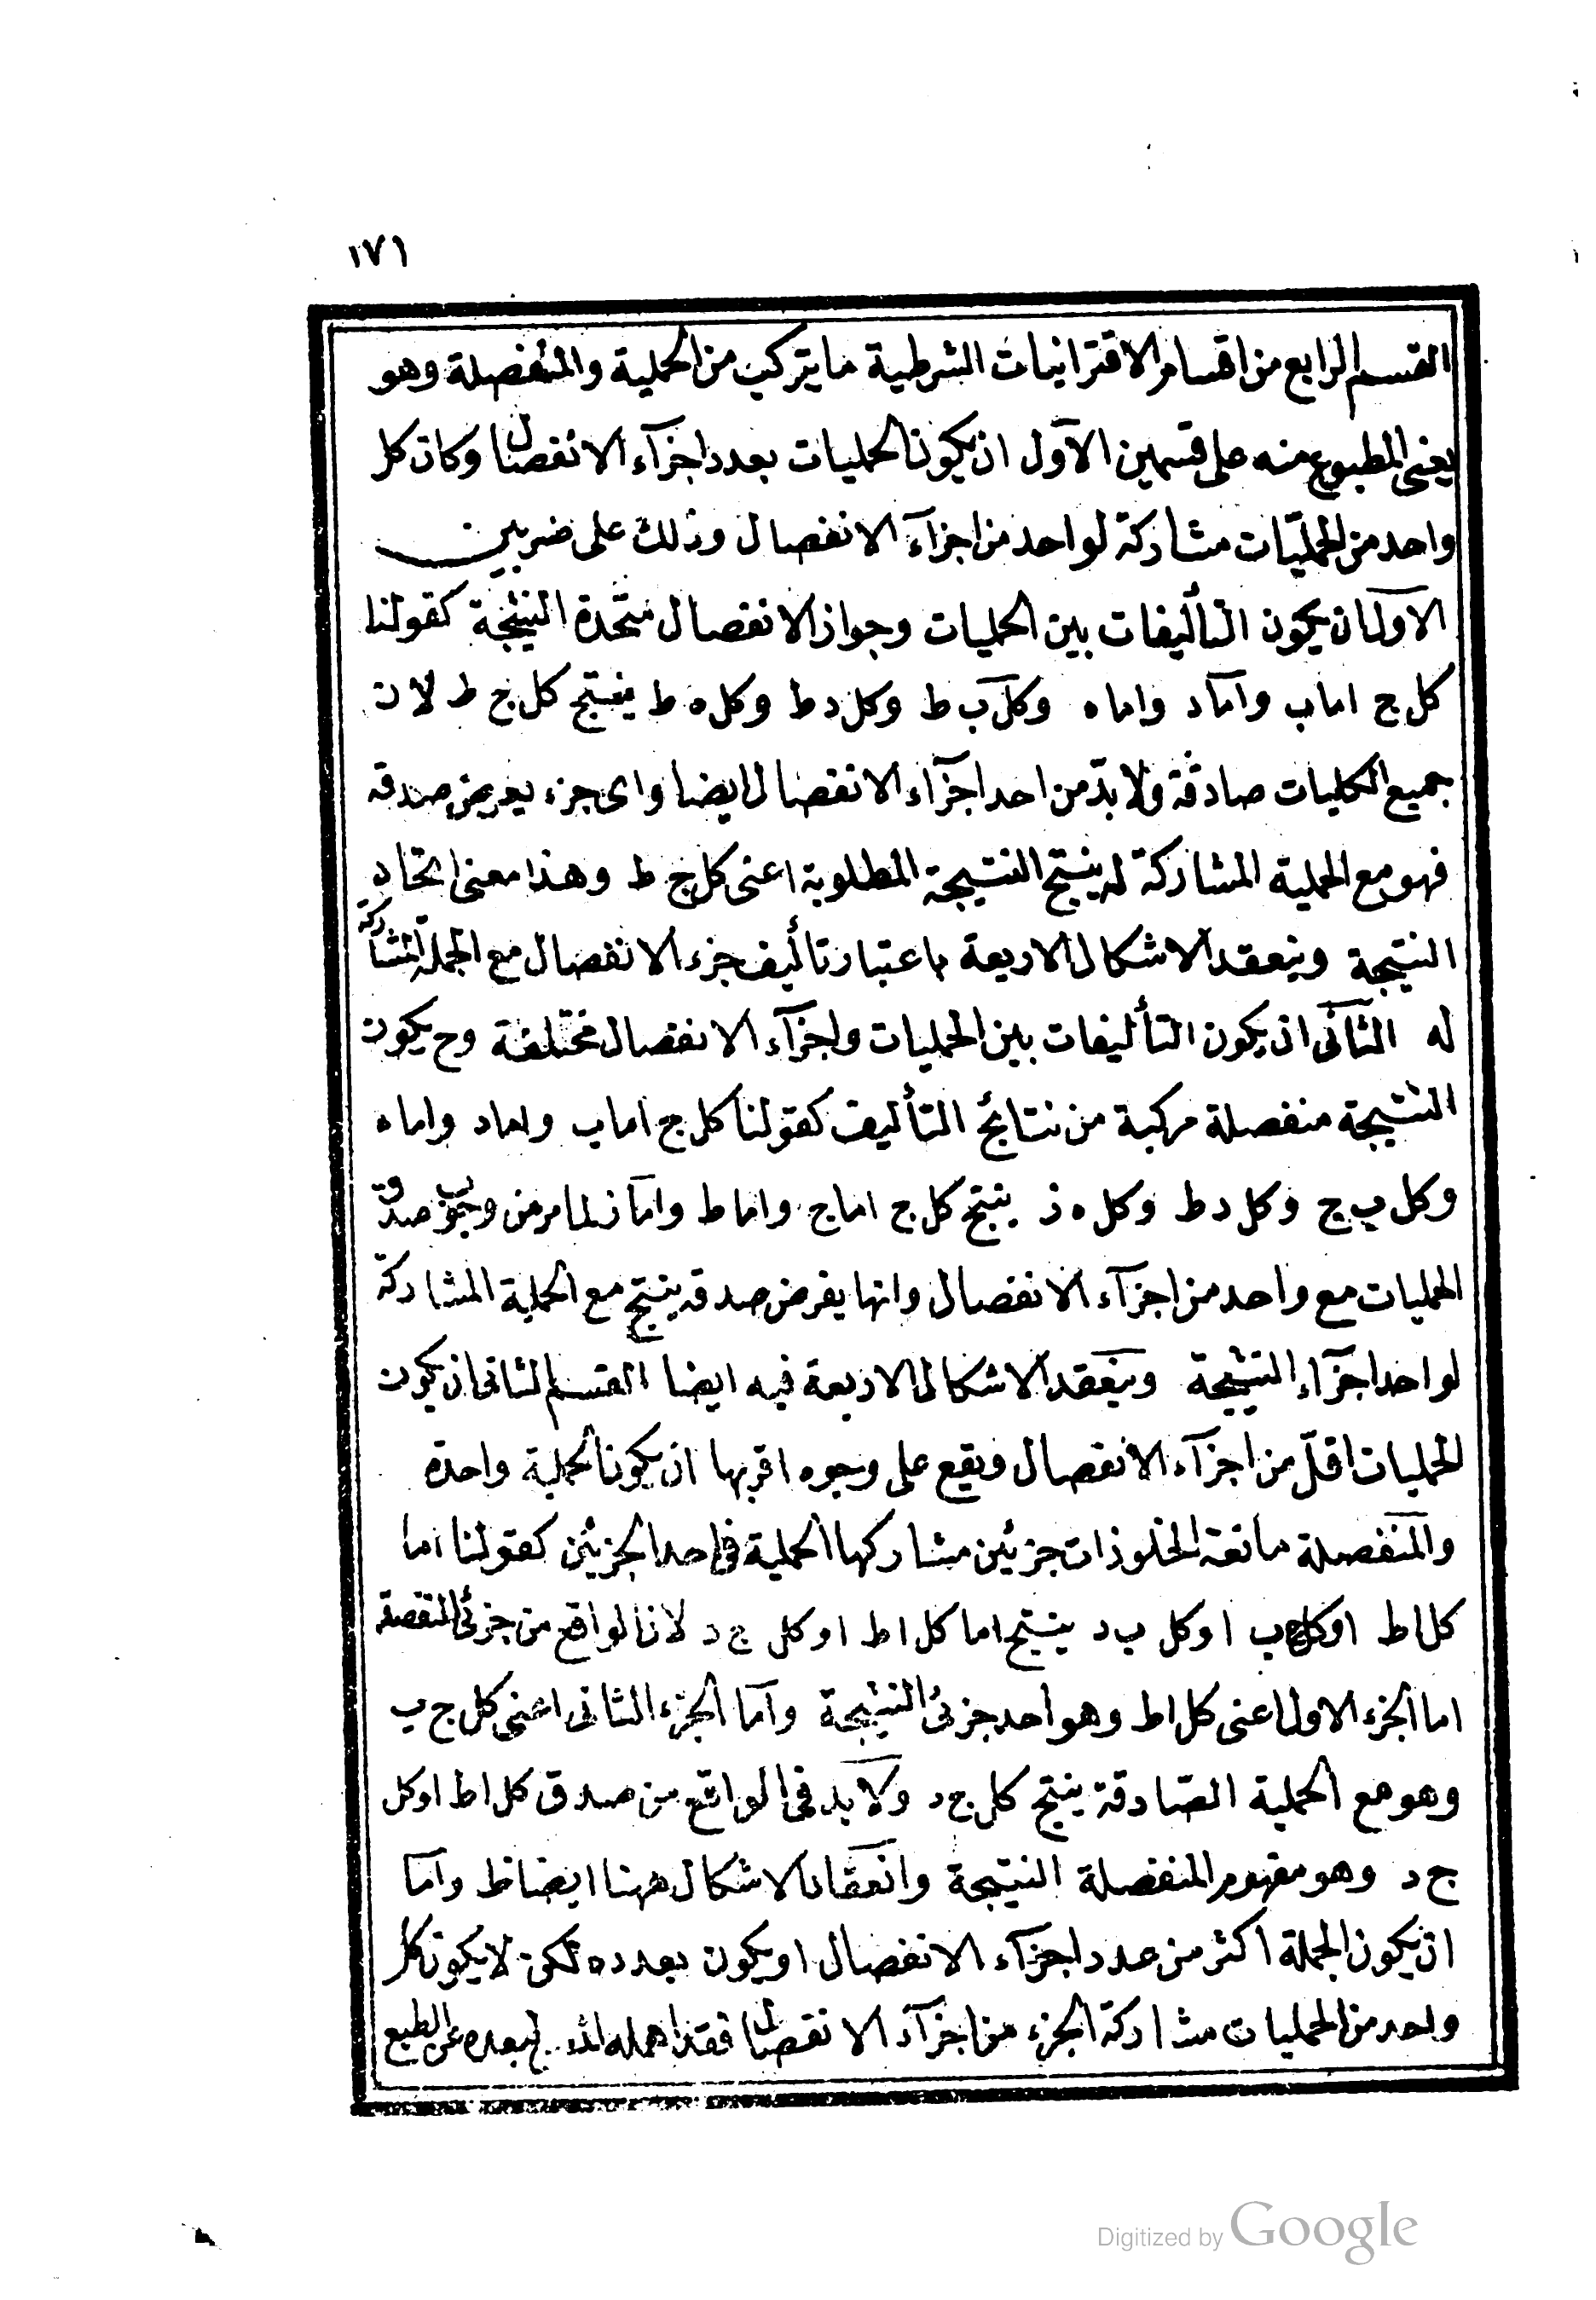 ١٧١
القسم الرابع من اقسام الاقترانيات الشرطية ما يتركب من الحملية والمنفصلة وهو
يعنى المطبوع منه على قسمين الاول ان يكون الحمليات بعدد اجزآء الانفصال وكان كل
واحد من الحمليات مشاركة لواحد من اجزآء الانفصال وذلك على ضربين
الاول ان يكون التأليفات بين الحمليات وجواز الانفصال متحدة النتيجة كقولنا
كل ج اما ب وامّا د واما ه وكل ب ط وكل د ط وكل ه ط ينتج كل ج ط لان
جميع الكليات صادقة ولا بدّ من احد اجزآء الانفصال ايضا واى جزء يعرض صدقه
فهو مع الحملية المشاركة له ينتج النتيجة المطلوبة اعنى كل ج ط وهذا معنى اتحاد
النتيجة وينعقد الاشكال الاربعة باعتبار تأليف جزء الانفصال مع الجملة المشاركة
له الثانى ان يكون التأليفات بين الحمليات واجزآء الانفصال مختلفة وح يكون
النتيجة منفصلة مركبة من نتايج التأليف كقولنا كل ج اما ب واما د واما ه
وكل ب ج وكل د ط وكل ه ز ينتج كل ج اما ج واما ط وامّا ز لما مر من وجوب صدق
الحمليات مع واحد من اجزآء الانفصال وانها يفرض صدقه ينتج مع الحملية المشاركة
لواحد اجزآء النتيجة وينعقد الاشكال الاربعة فيه ايضا القسم الثانى ان يكون
الحمليات اقلّ من اجزآء الانفصال ويقع على وجوه اقربها ان يكون الحملية واحدة
والمنفصلة مانعة الخلو ذات جزئين مشاركها الحملية فى احد الجزئين كقولنا اما
كل ا ط او كل ج ب او كل ب د ينتج اما كل ا ط او كل ج د لان الواقع من جزئى المنفصلة
اما الجزء الاول اعنى كل ا ط وهو أحد جزئى النتيجة وامّا الجزء الثانى اعنى كل ج ب
وهو مع الحملية الصّادقة ينتج كل ج د ولا بد فى الواقع من صدق كل ا ط او كل
ج د وهو مفهوم المنفصلة النتيجة وانعقاد الاشكال ههنا ايضا ظ وامّا
ان يكون الجملة اكثر من عدد اجزآء الانفصال او يكون بعدده لكن لا يكون كل
واحد من الحمليات مشاركة الجزء من اجزآء الانفصال فقد اهمله لبعده عن الطبع
Digitized by Google